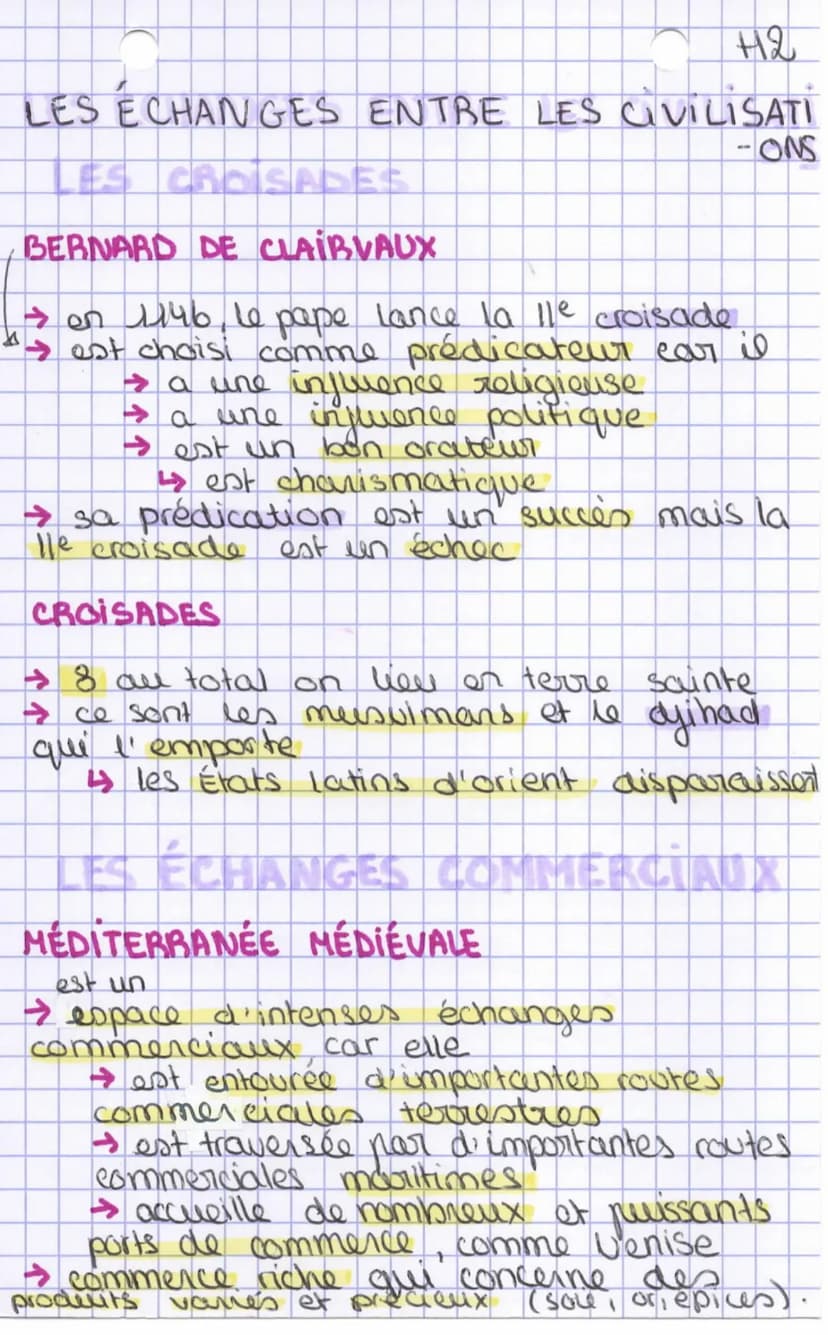 H2
LES ÉCHANGES ENTRE LES CIVILISATI
-ONS
LES CROISADES
BERNARD DE CLAIRVAUX
→ en 1146, le pape lance la IIe croisade
→ est choisi comme prédicateur car il
→ a une influence religieuse
→ a une influence politique
→ est un bon orateur
↳ est charismatique
→ sa prédication est un succès mais la
IIe croisade est un échec
CROISADES
→ 8 au total on lieu en terre sainte
→ ce sont les musulmans et le djihad
qui l'emporte
↳ les États latins d'orient disparaissent
LES ÉCHANGES COMMERCIAUX
MÉDITERRANÉE MÉDIÉVALE
est un
→ espace d'intenses échanges
commerciaux, car elle
→ est entourée d'importantes routes
commerciales terrestres
→ est traversée par d'importantes routes
commerciales maritimes
→ accueille de nombreux et puissants
ports de commerce, comme Venise
→ commerce riche qui concerne des
produits variés et précieux (soie, or, épices).